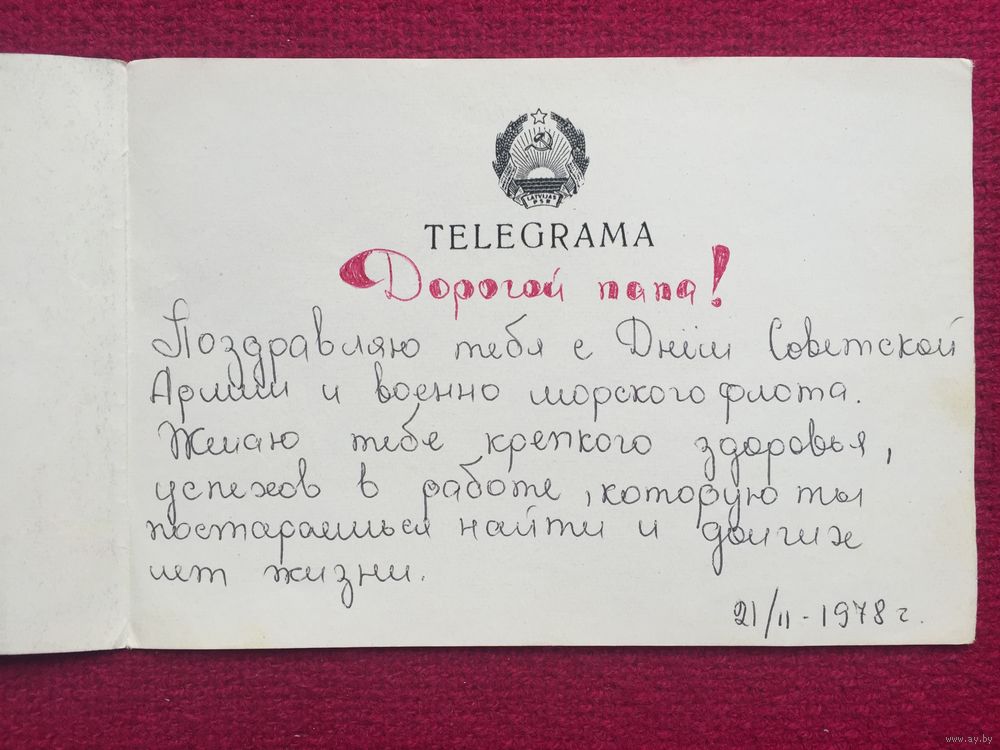 LATVIJAS
PSR
TELEGRAMA
Дорогой папа!
Поздравляю тебя с Днём Советской
Армии и военно морского флота.
Желаю тебе крепкого здоровья,
успехов в работе, которую ты
постараешься найти и долгих
лет жизни.
21/II - 1978 г.
www.ay.by